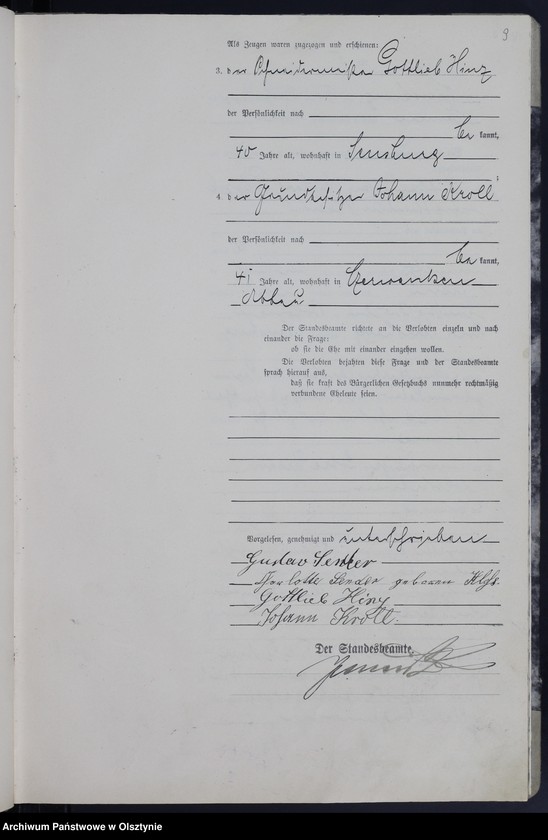 9
Als Zeugen waren zugezogen und erschienen:
3. der Schneidermeister Gottlieb Hinz
der Persönlichkeit nach
be kannt,
40 Jahre alt, wohnhaft in Sensburg
;
4. der Grundbesitzer Johann Kroll
der Persönlichkeit nach
be kannt,
41 Jahre alt, wohnhaft in Czerwanken
Abbau.
Der Standesbeamte richtete an die Verlobten einzeln und nach
einander die Frage:
ob sie die Ehe mit einander eingehen wollen.
Die Verlobten bejahten diese Frage und der Standesbeamte
sprach hierauf aus,
daß sie kraft des Bürgerlichen Gesetzbuchs nunmehr rechtmäßig
verbundene Eheleute seien.
Vorgelesen, genehmigt und unterschrieben
Gustav
Sender geboren
Gottlieb Hinz
Johann Kroll.
Der Standesbeamte.
Archiwum Państwowe w Olsztynie